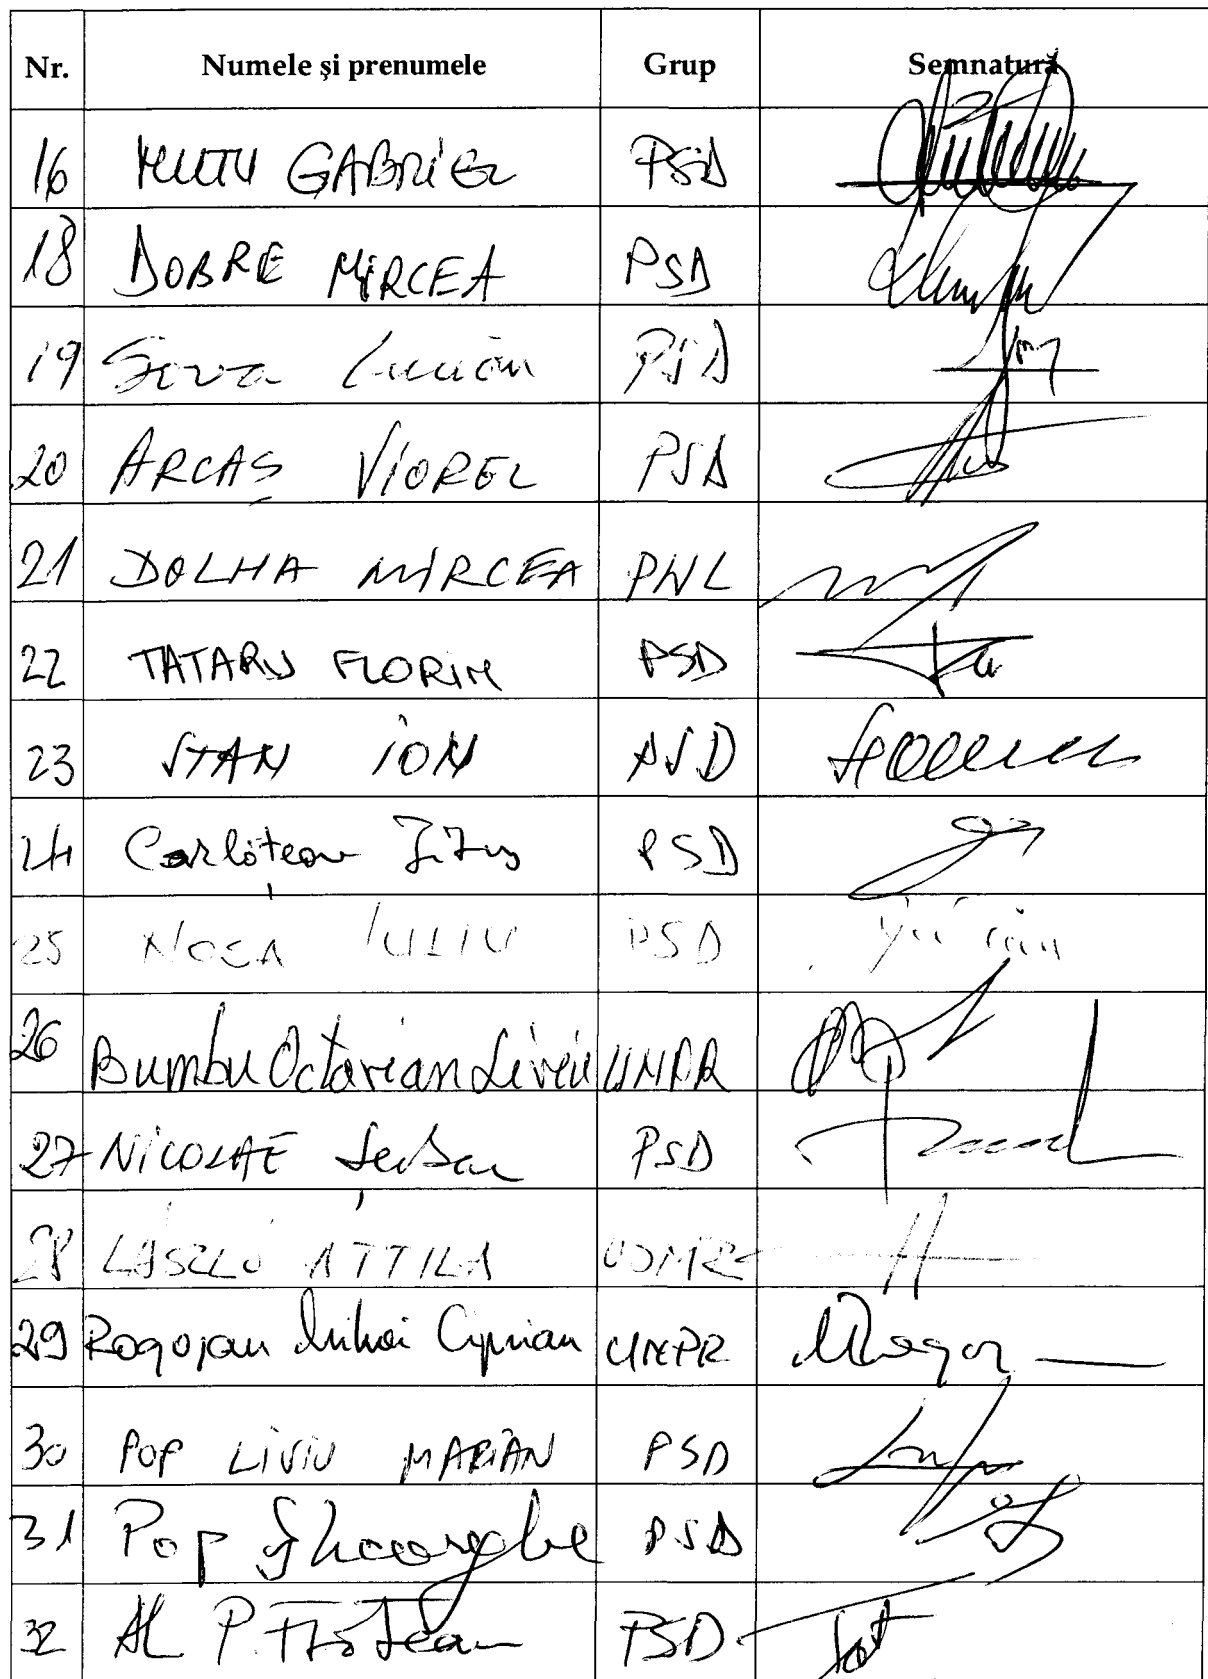 Nr. Numele şi prenumele Grup Semnatură
16 MUTU GABRIEL PSD
18 DOBRE MIRCEA PSD
19 Șova Lucian PSD
20 ARCAŞ VIOREL PSD
21 DOLHA MIRCEA PNL
22 TATARU FLORIN PSD
23 STAN ION PSD
24 Corlățean Titus PSD
25 NOSA IULIU PSD
26 Bumbu Octavian Liviu UNPR
27 NICOLAE Șerban PSD
28 LÁSZLÓ ATTILA UDMR
29 Rogojan Mihai Ciprian UNPR
30 POP LIVIU MARIAN PSD
31 Pop Gheorghe PSD
32 Al P. PSD